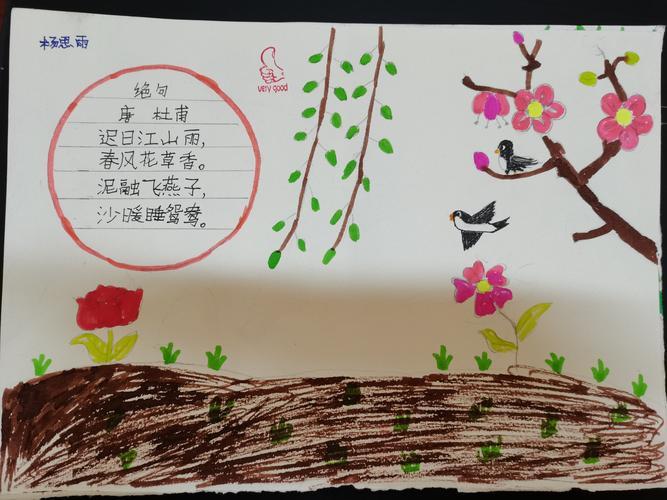 杨思雨
绝句
唐 杜甫
迟日江山雨，
春风花草香。
泥融飞燕子，
沙暖睡鸳鸯。
very good